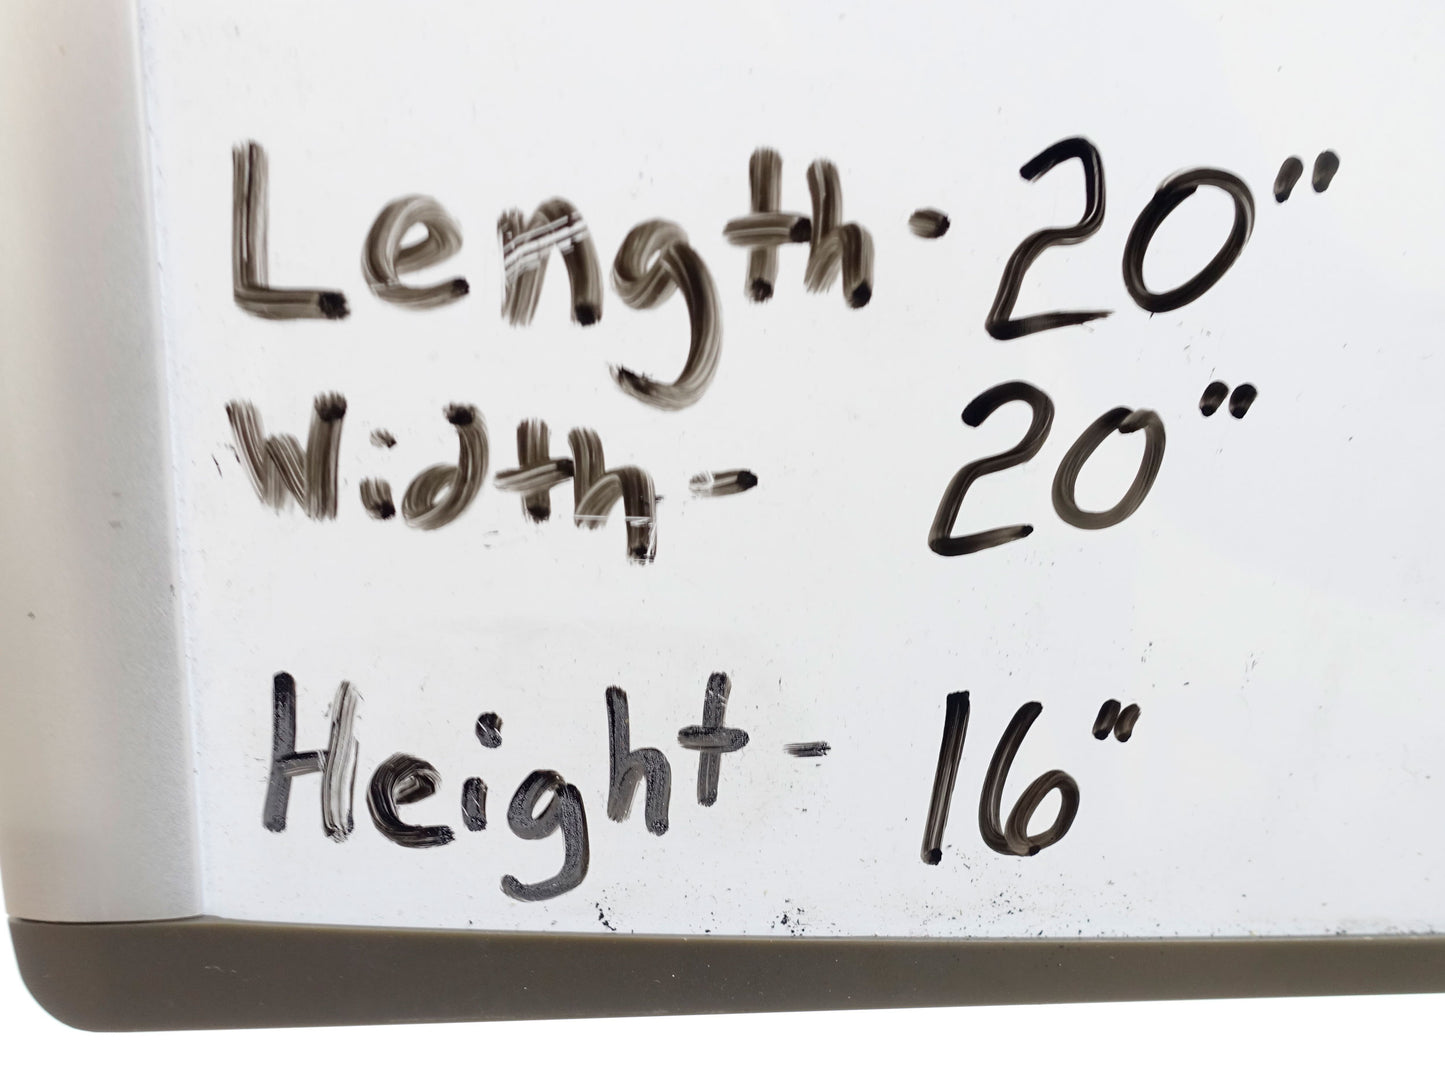 Length - 20"
Width - 20"
Height - 16"